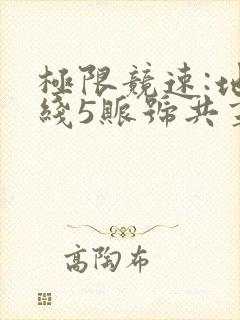 極限競速:地
綫5賬號共享
高陶布